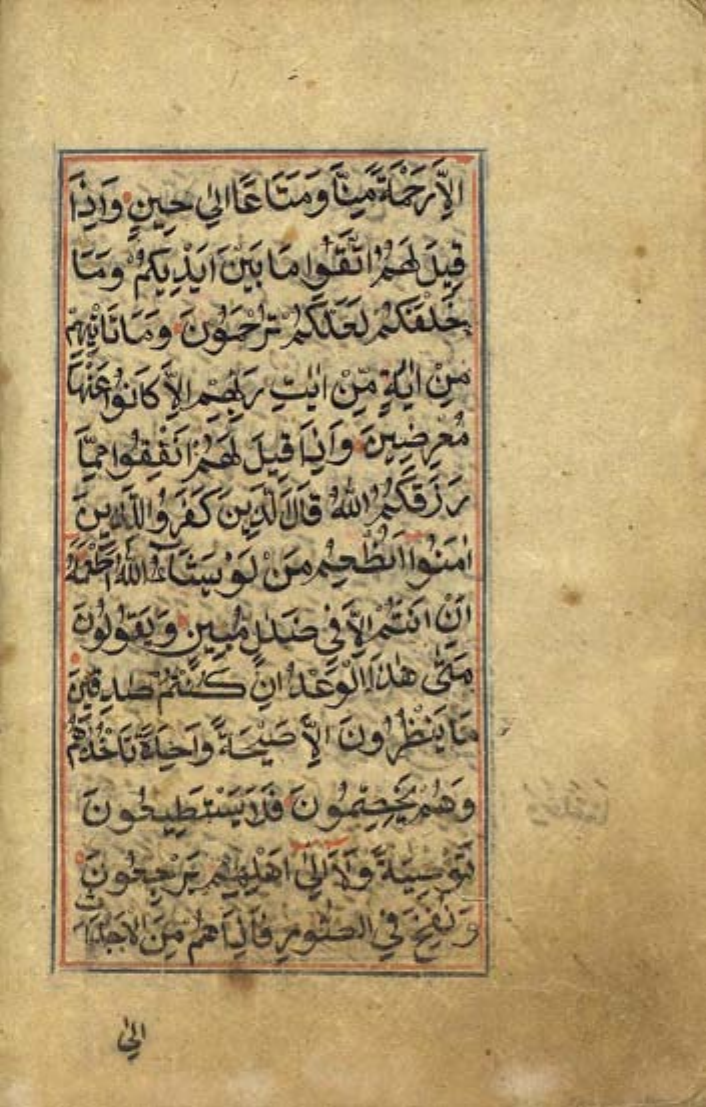 اِلاَّ رَحْمَةً مِنَّا وَمَتَاعًا اِلٰي حِينٍ وَاِذَا
قِيلَ لَهُمُ اتَّقُوا مَا بَيْنَ اَيْدِيكُمْ وَمَا
خَلْفَكُمْ لَعَلَّكُمْ تُرْحَمُونَ وَمَا تَاْتِيهِمْ
مِنْ اٰيَةٍ مِّنْ اٰيٰتِ رَبِّهِمْ اِلاَّ كَانُوا عَنْهَا
مُعْرِضِينَ وَاِذَا قِيلَ لَهُمْ اَنْفِقُوا مِمَّا
رَزَقَكُمُ اللّٰهُ قَالَ الَّذِينَ كَفَرُوا لِلَّذِينَ
اٰمَنُوا اَنُطْعِمُ مَنْ لَوْ يَشَآءُ اللّٰهُ اَطْعَمَهُ
اِنْ اَنْتُمْ اِلاَّ فِي ضَلٰلٍ مُبِينٍ وَيَقُولُونَ
مَتٰي هٰذَا الْوَعْدُ اِنْ كُنْتُمْ صٰدِقِينَ
مَا يَنْظُرُونَ اِلاَّ صَيْحَةً وَاحِدَةً تَاْخُذُهُمْ
وَهُمْ يَخِصِّمُونَ فَلاَ يَسْتَطِيعُونَ
تَوْصِيَةً وَلاَ اِلٰٓي اَهْلِهِمْ يَرْجِعُونَ
وَنُفِخَ فِي الصُّورِ فَاِذَا هُمْ مِنَ الاَجْدَاثِ
اِلٰي